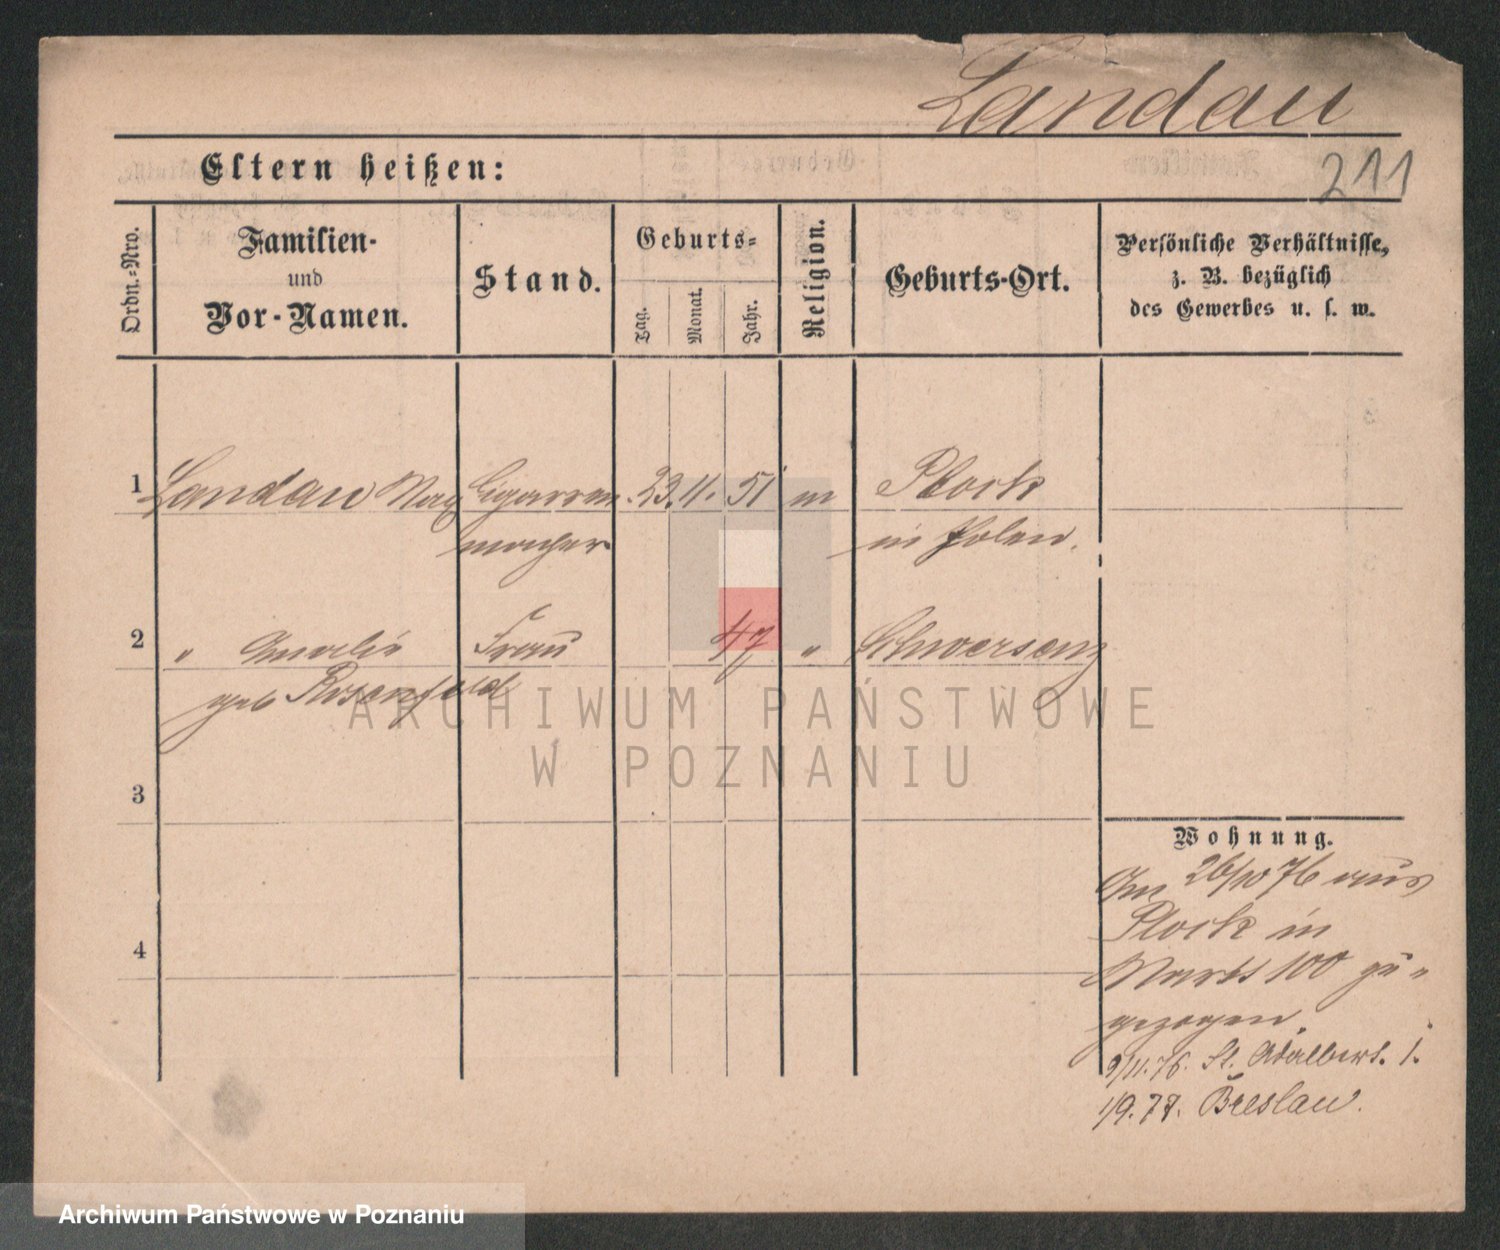 Landau
211
Eltern heißen:
Ordn.-Nro.
Familien-
und
Vor-Namen.
Stand.
Geburts-
Tag.
Monat.
Jahr.
Religion.
Geburts-Ort.
Persönliche Verhältnisse,
z. B. bezüglich
des Gewerbes u. s. w.
1 Landau Max Cigarren 23. 11. 51 m Plock
macher in Polen.
2 " Amalie Frau 47 " Schwersenz
geb Rosenfeld
ARCHIWUM PAŃSTWOWE
W POZNANIU
3
4
Wohnung.
Am 26/10 76 aus
Plock in
Markt 100 zu-
gezogen.
9/11. 76. St. Adalbert. 1.
1/9. 77. Breslau.
Archiwum Państwowe w Poznaniu